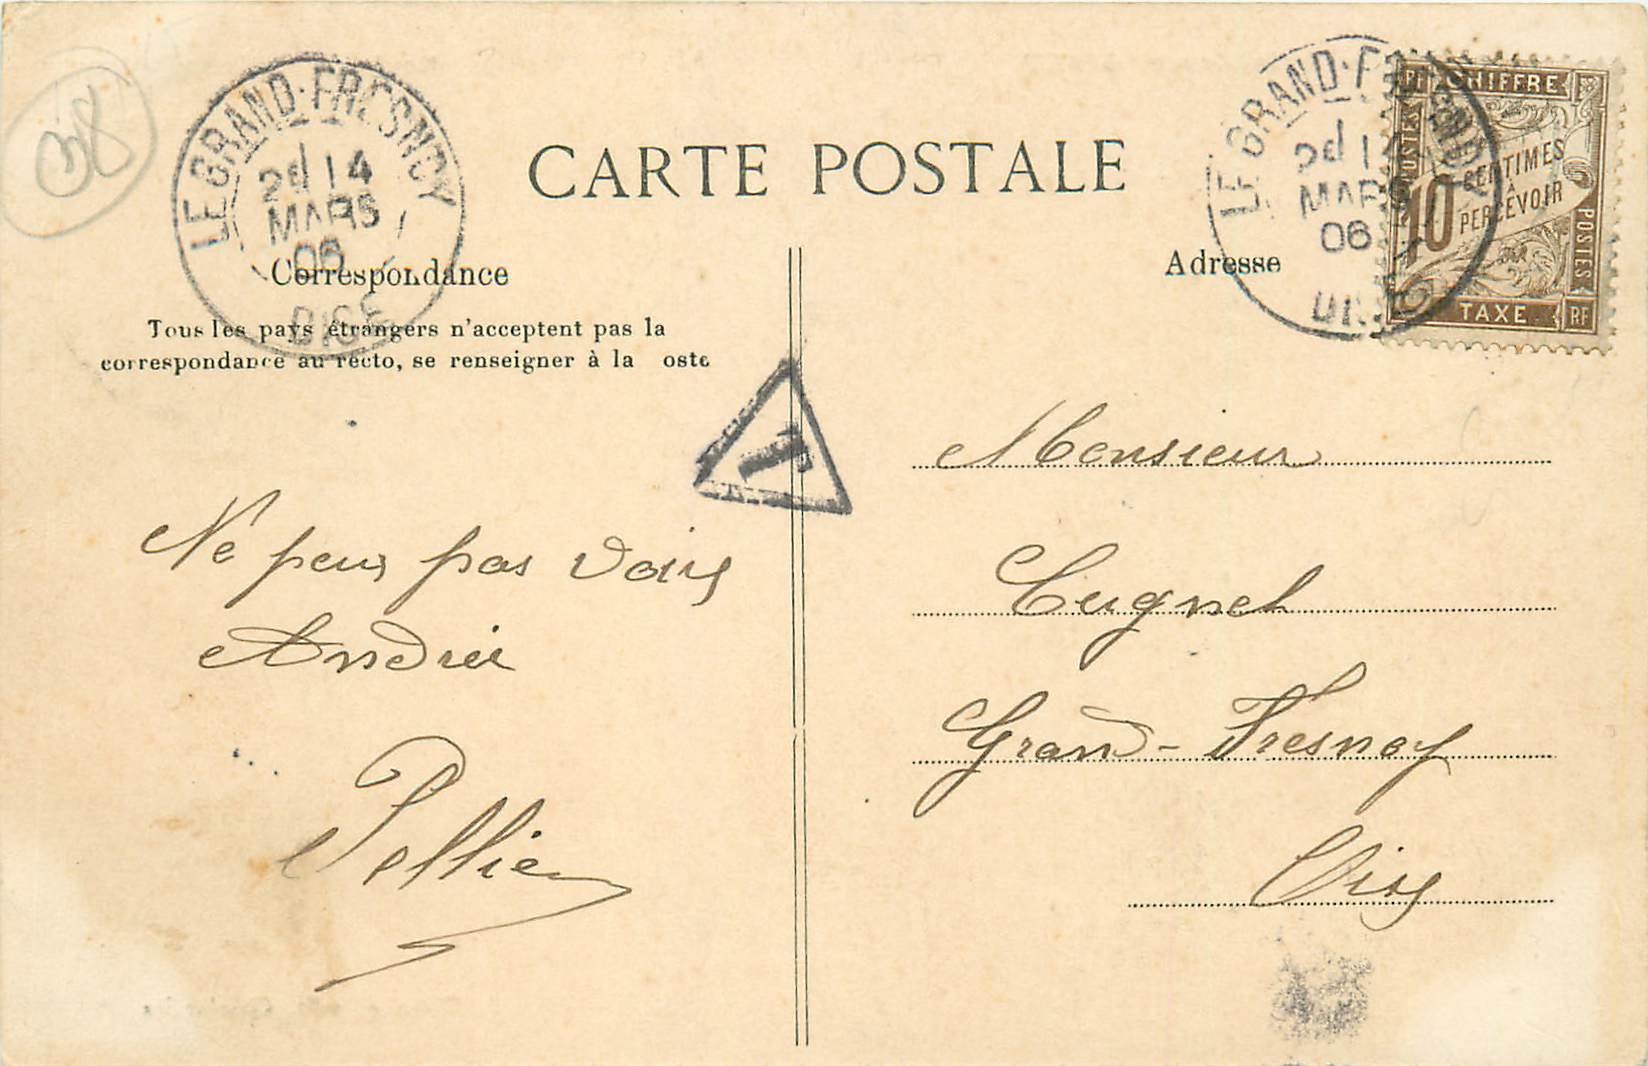 38
LE GRAND-FRESNOY
2e 14
MARS
06
OISE
CARTE POSTALE
LE GRAND-FRESNOY
2e 14
MARS
06
OISE
CHIFFRE
POSTES
10 CENTIMES
À
PERCEVOIR
POSTES
TAXE
RF
Correspondance
Tous les pays étrangers n'acceptent pas la
correspondance au recto, se renseigner à la oste
T
Ne peux pas voir
André
Pellier
Adresse
Monsieur
Cugnet
Grand-Fresnoy
Oise